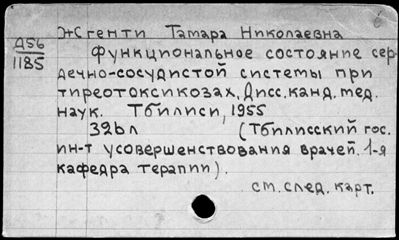 6
Жгенти Тамара Николаевна
Д56
1185
Функциональное состояние сер-
дечно-сосудистой системы при
тиреотоксикозах. Дисс. канд. мед.
наук. Тбилиси, 1955
32б л (Тбилисский гос.
ин-т усовершенствования врачей. 1-я
кафедра терапии).
см. след. карт.